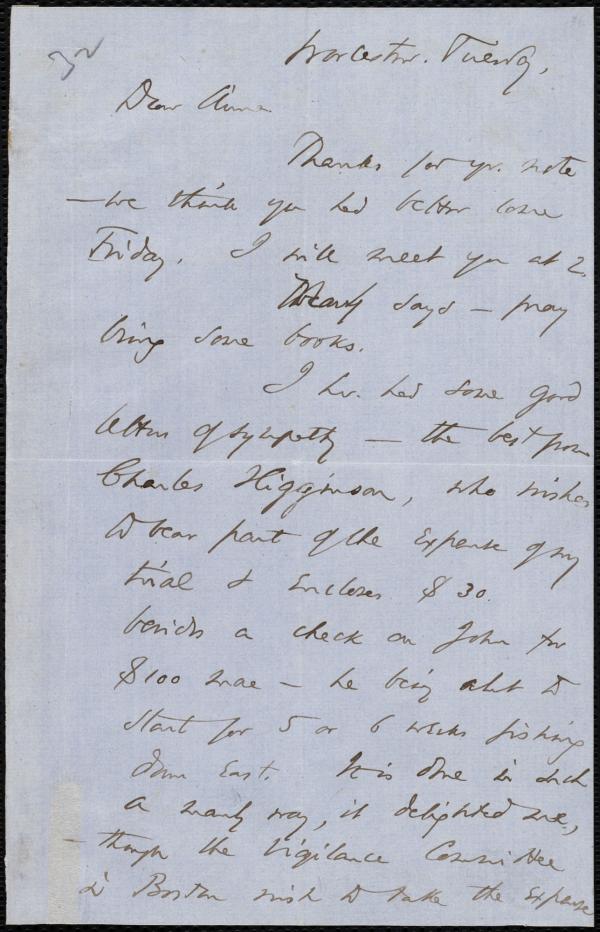 Worcester. Tuesday,
Dear Anna
Thanks for yr. note
— we think you had better come
Friday. I will meet you at 2.
Mary says — pray
bring some books.
I hv. had some good
letters of sympathy — the best from
Charles Higginson, who wishes
to bear part of the expense of my
trial & encloses $30.
besides a check on John for
$100 more — he being abt to
start for 5 or 6 weeks fishing
down East. It is done in such
a manly way, it delighted me,
— though the Vigilance Committee
in Boston wish to take the expense